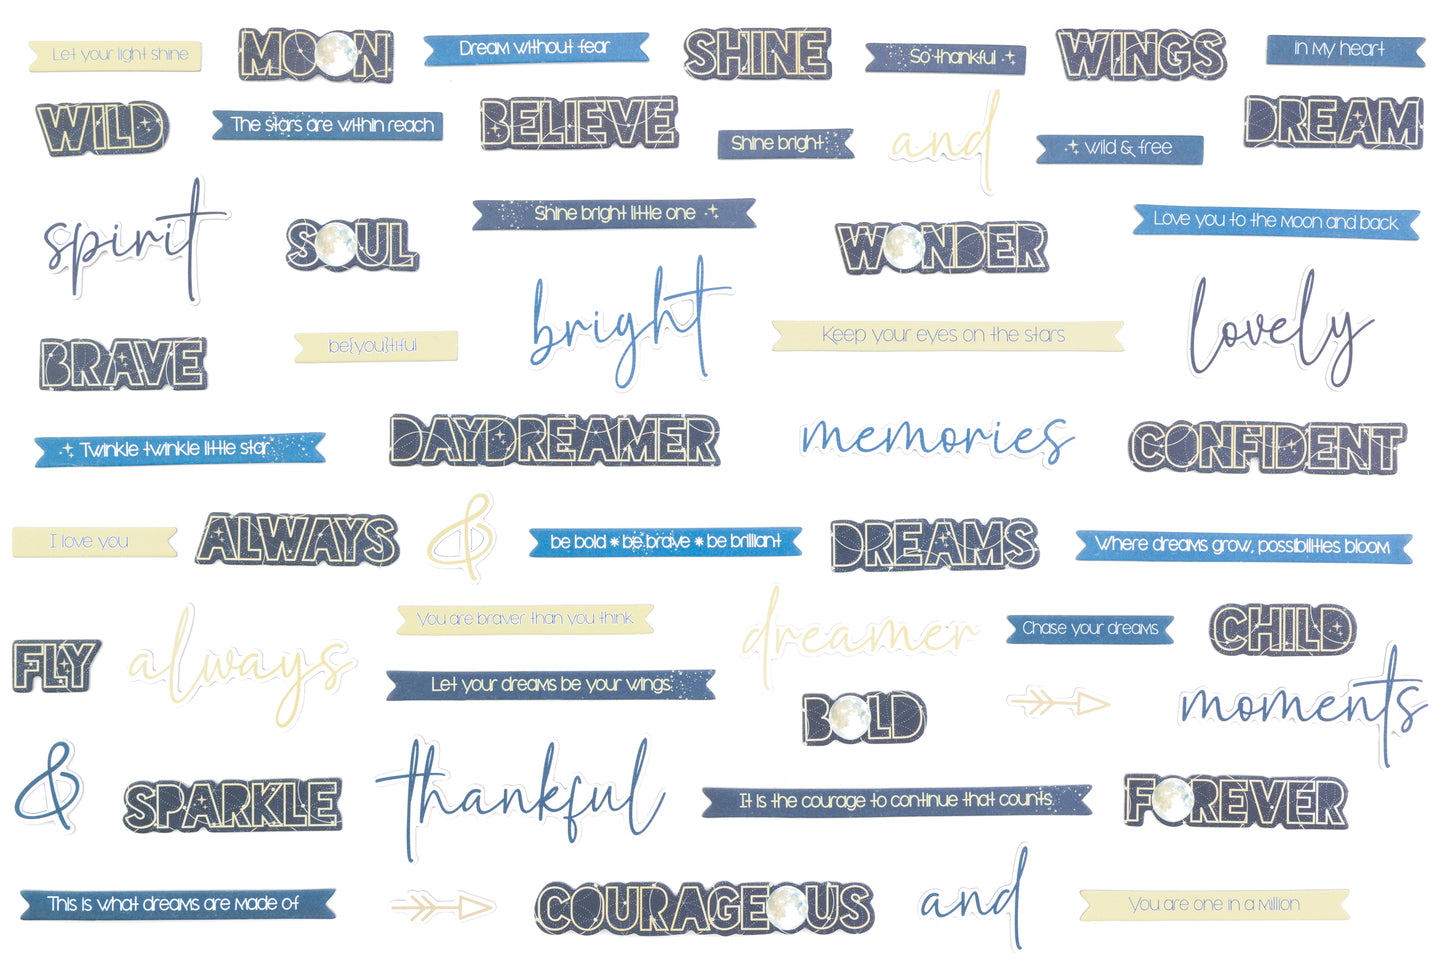 Let your light shine
MOON
Dream without fear
SHINE
So thankful
WINGS
In my heart
WILD
The stars are within reach
BELIEVE
Shine bright
and
wild & free
DREAM
spirit
SOUL
Shine bright little one
WONDER
Love you to the moon and back
BRAVE
be{you}tiful
bright
Keep your eyes on the stars
lovely
Twinkle twinkle little star
DAYDREAMER
memories
CONFIDENT
I love you
ALWAYS
&
be bold * be brave * be brilliant
DREAMS
Where dreams grow, possibilities bloom
FLY
always
You are braver than you think
dreamer
Chase your dreams
CHILD
Let your dreams be your wings
BOLD
moments
&
SPARKLE
thankful
It is the courage to continue that counts.
FOREVER
This is what dreams are made of
COURAGEOUS
and
You are one in a million